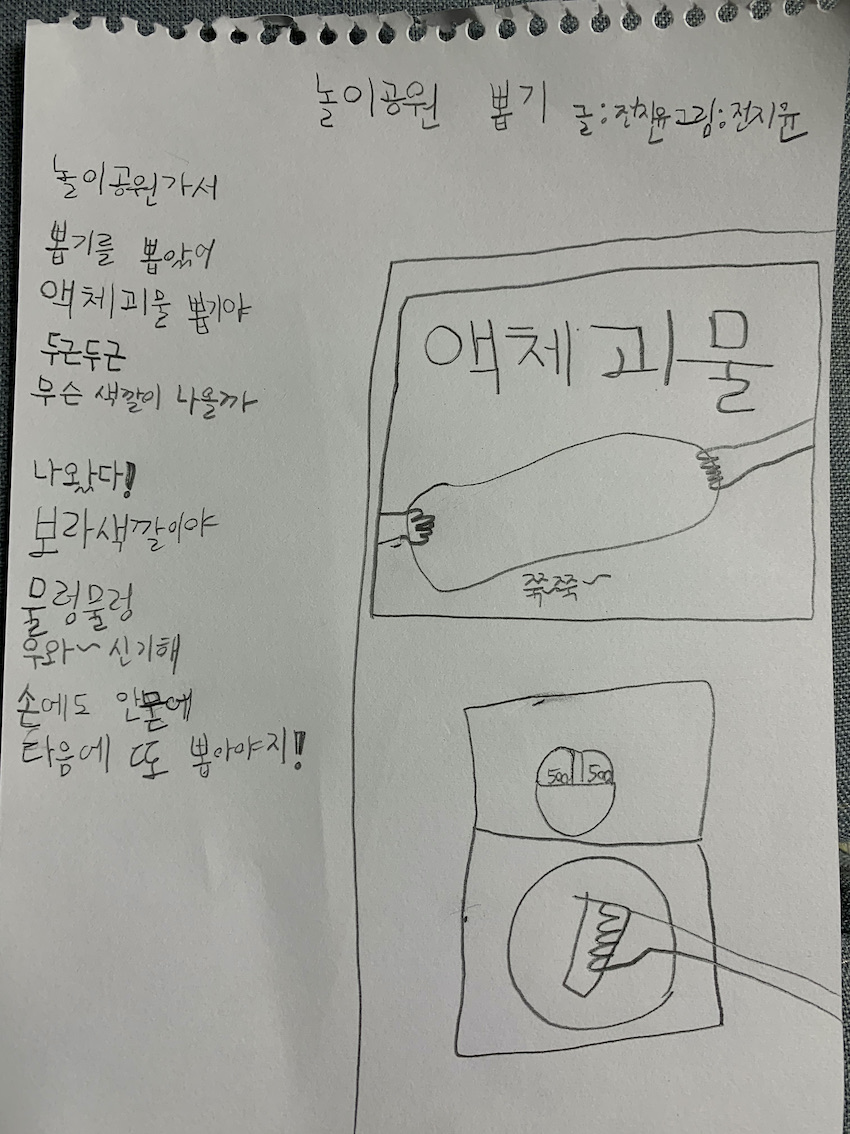 놀이공원 뽑기 글:전지윤 그림:전지윤
놀이공원가서
뽑기를 뽑았어
액체괴물 뽑기야
두근두근
무슨 색깔이 나올까
나왔다!
보라색깔이야
물렁물렁
우와~ 신기해
손에도 안뭍에
다음에 또 뽑아야지!
액체괴물
쭉쭉~
500 500